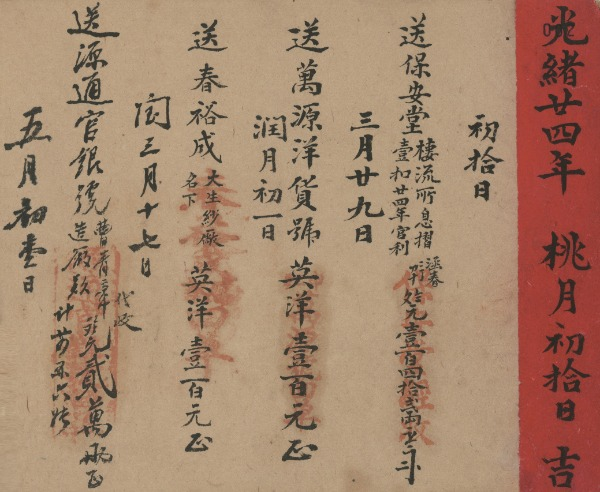 光緒廿四年 桃月初拾日 吉
初拾日
送保安堂棲流所息摺壹扣廿四年官利
元壹百四拾
三月廿九日
送萬源洋貨號英洋壹百元正
潤月初一日
送春裕成大生紗廠名下英洋壹百元正
閏三月十七日
送源通官銀號
造厰款
貳萬兩正
計 六張
代收
五月初壹日